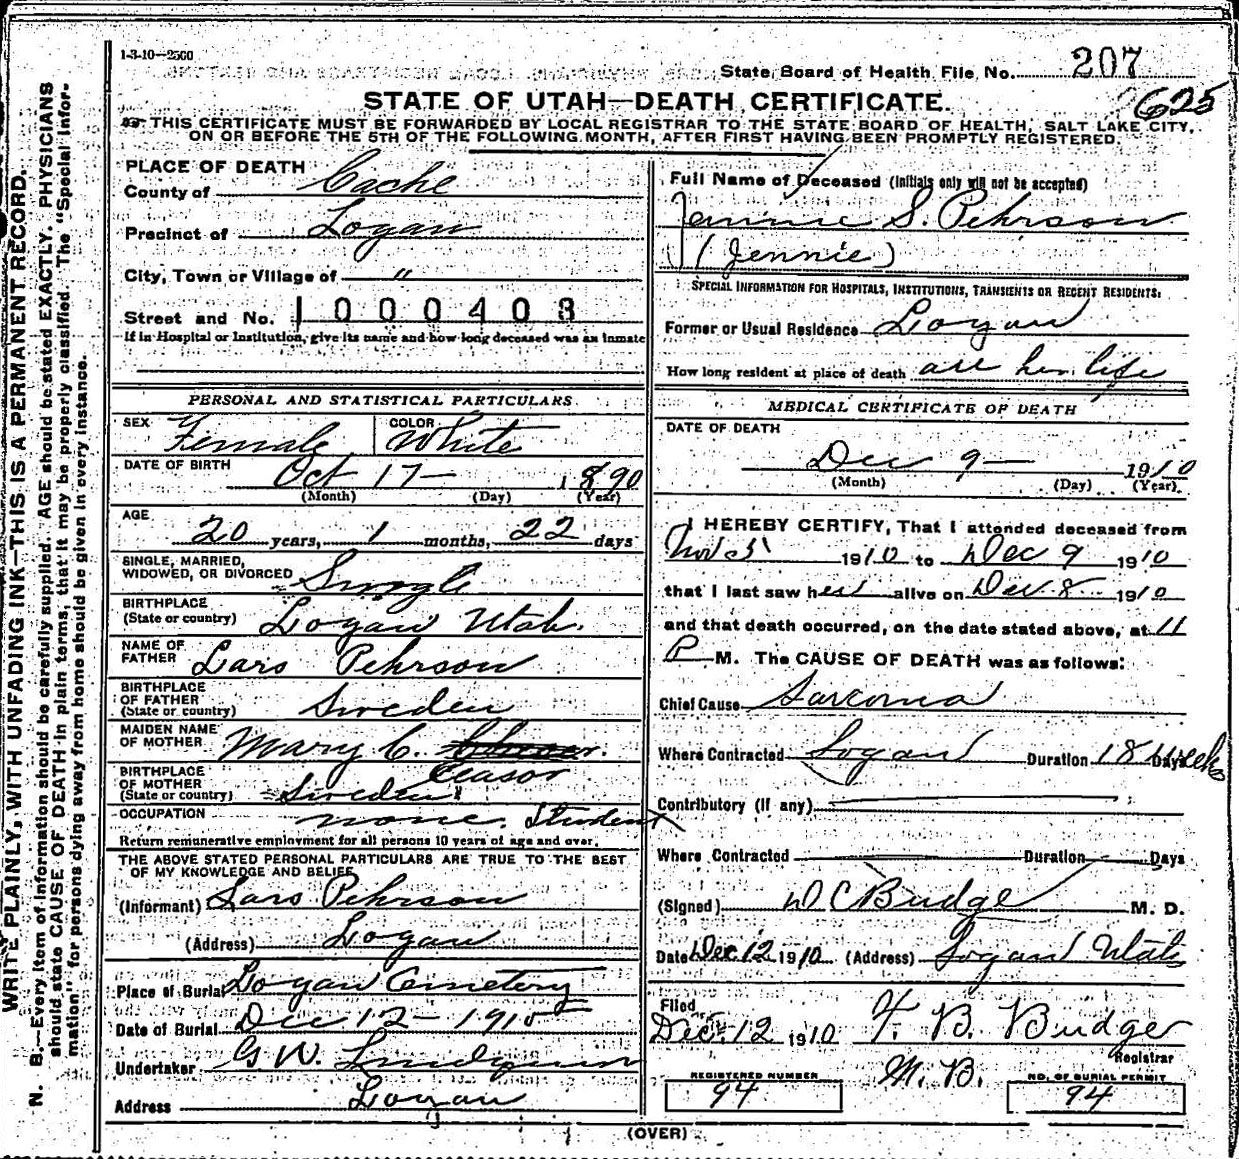 1-3-10—2500
State Board of Health File No. 207
625
STATE OF UTAH—DEATH CERTIFICATE.
THIS CERTIFICATE MUST BE FORWARDED BY LOCAL REGISTRAR TO THE STATE BOARD OF HEALTH, SALT LAKE CITY,
ON OR BEFORE THE 5TH OF THE FOLLOWING MONTH, AFTER FIRST HAVING BEEN PROMPTLY REGISTERED.
WRITE PLAINLY, WITH UNFADING INK—THIS IS A PERMANENT RECORD.
N. B.—Every item of information should be carefully supplied. AGE should be stated EXACTLY. PHYSICIANS
should state CAUSE OF DEATH in plain terms, that it may be properly classified. The "Special Infor-
mation" for persons dying away from home should be given in every instance.
PLACE OF DEATH
County of Cache
Precinct of Logan
City, Town or Village of "
Street and No. 1000403
If in Hospital or Institution, give its name and how long deceased was an inmate
PERSONAL AND STATISTICAL PARTICULARS
SEX Female COLOR White
DATE OF BIRTH Oct 17— 1890
(Month) (Day) (Year)
AGE
20 years, 1 months, 22 days
SINGLE, MARRIED,
WIDOWED, OR DIVORCED Single
BIRTHPLACE
(State or country) Logan Utah.
NAME OF
FATHER Lars Pehrson
BIRTHPLACE
OF FATHER
(State or country) Sweden
MAIDEN NAME
OF MOTHER Mary C.
Ceasor
BIRTHPLACE
OF MOTHER
(State or country) Sweden
OCCUPATION none. Student
Return remunerative employment for all persons 10 years of age and over.
THE ABOVE STATED PERSONAL PARTICULARS ARE TRUE TO THE BEST
OF MY KNOWLEDGE AND BELIEF
(Informant) Lars Pehrson
(Address) Logan
Place of Burial Logan Cemetery
Date of Burial Dec 12— 1910
Undertaker G. W. Lindquist
Address Logan
Full Name of Deceased (Initials only will not be accepted)
Jennie S. Pehrson
(Jennie)
SPECIAL INFORMATION FOR HOSPITALS, INSTITUTIONS, TRANSIENTS OR RECENT RESIDENTS:
Former or Usual Residence Logan
How long resident at place of death all her life
MEDICAL CERTIFICATE OF DEATH
DATE OF DEATH
Dec 9— 1910
(Month) (Day) (Year)
I HEREBY CERTIFY, That I attended deceased from
Nov 5 1910 to Dec 9 1910
that I last saw her alive on Dec 8 1910
and that death occurred, on the date stated above, at 11
P M. The CAUSE OF DEATH was as follows:
Chief Cause Sarcoma
Where Contracted Logan Duration 18 Days weeks
Contributory (if any)
Where Contracted Duration Days
(Signed) D C Budge M. D.
Date Dec 12 1910 (Address) Logan Utah
Filed
Dec. 12 1910 F. B. Budge
Registrar
M. B.
REGISTERED NUMBER
94
NO. OF BURIAL PERMIT
94
(OVER)